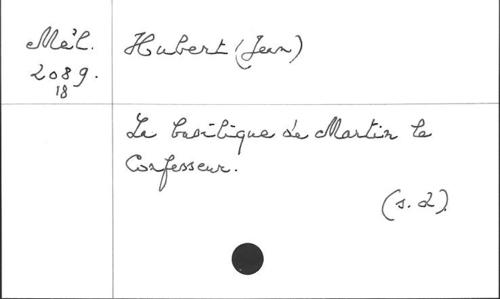 Mél.
2089.
18
Hubert (Jean)
La basilique de Martin le
Confesseur.
(s.d.)